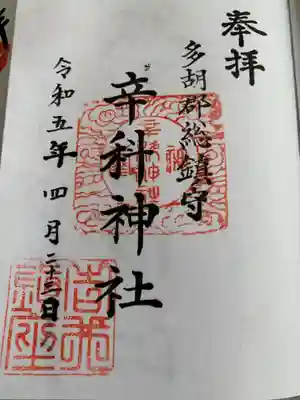 奉拝
多胡郡総鎮守
辛科神社
令和五年四月二十三日